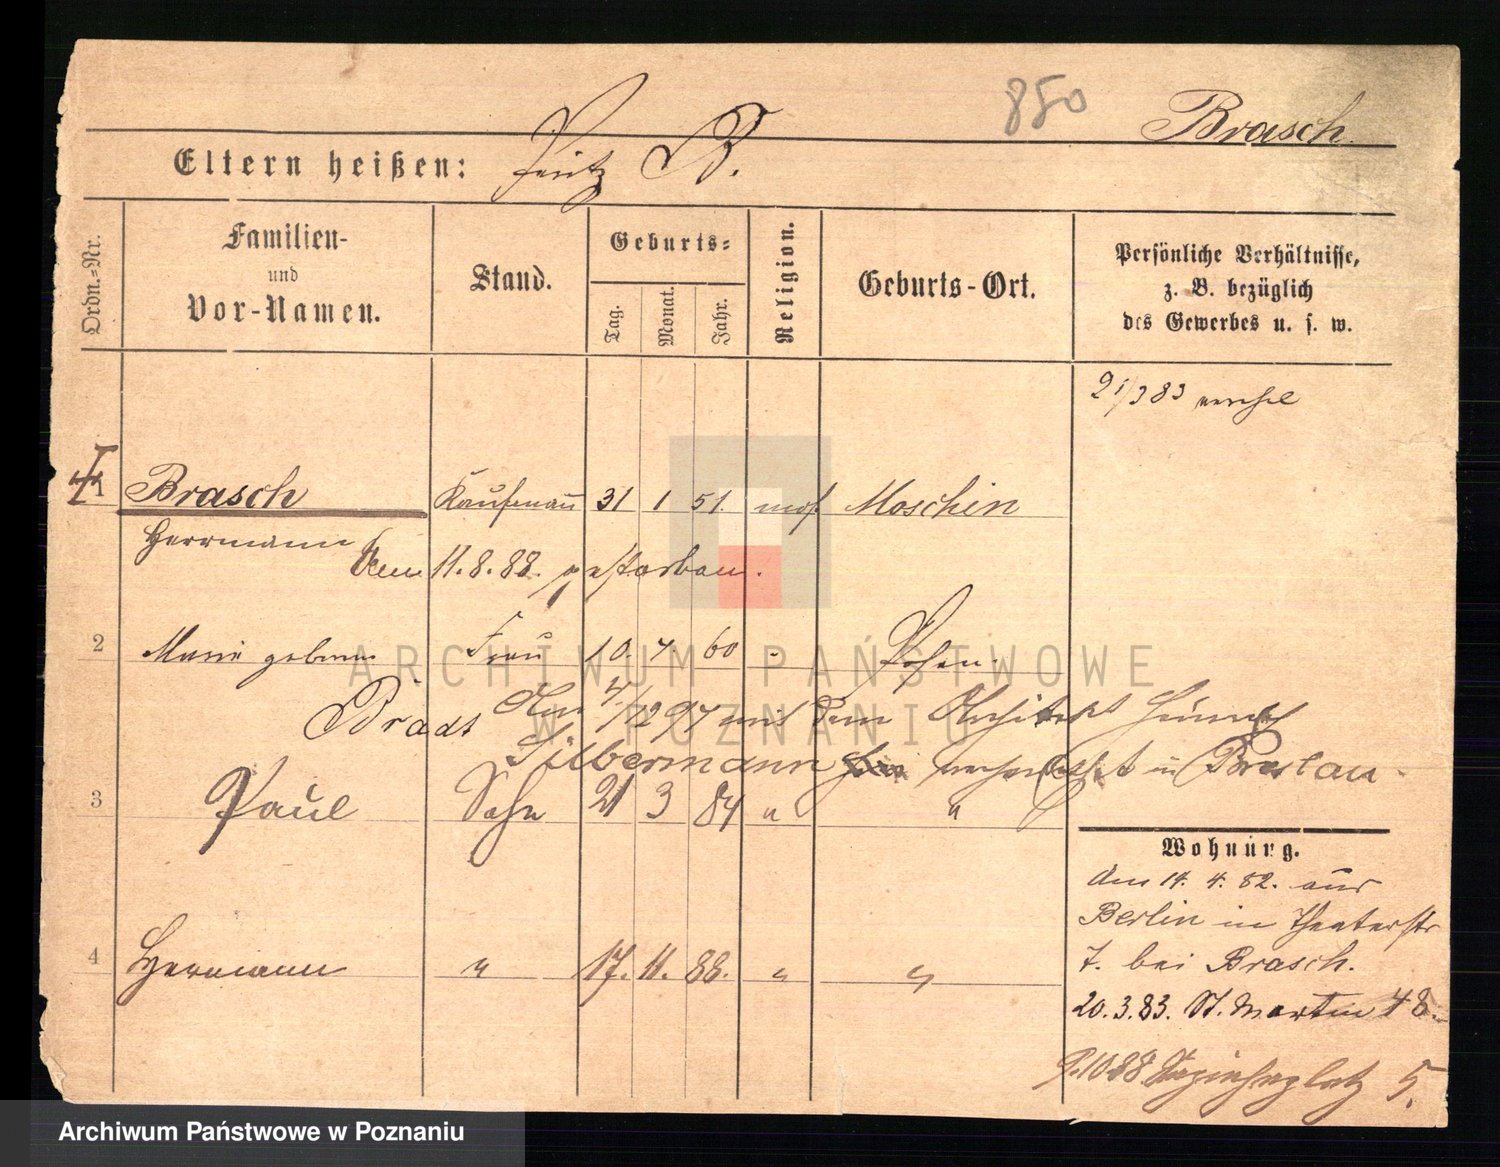 850
Brasch.
Eltern heißen: B.
Ordn.=Nr.
Familien-
und
Vor-Namen.
Stand.
Geburts=
Tag.
Monat.
Jahr.
Religion.
Geburts-Ort.
Persönliche Verhältnisse,
z. B. bezüglich
des Gewerbes u. s. w.
21/3 83 verehel
1 Brasch Kaufmann 31 1 51. mos Moschin
Herrmann
Am 11.8.88. gestorben.
2 Marie geborene Frau 10. 7. 60 " Posen.
Bradt Am 4/12 97 mit dem Architekt
Silbermann verheirathet in Breslau.
3 Paul Sohn 21 3 84 " "
4 Hermann " 17. 11. 88. " "
Wohnung.
Am 14. 4. 82. aus
Berlin in Theaterstr
7. bei Brasch.
20.3.83. St. Martin 48.
5.
ARCHIWUM PAŃSTWOWE
W POZNANIU
Archiwum Państwowe w Poznaniu